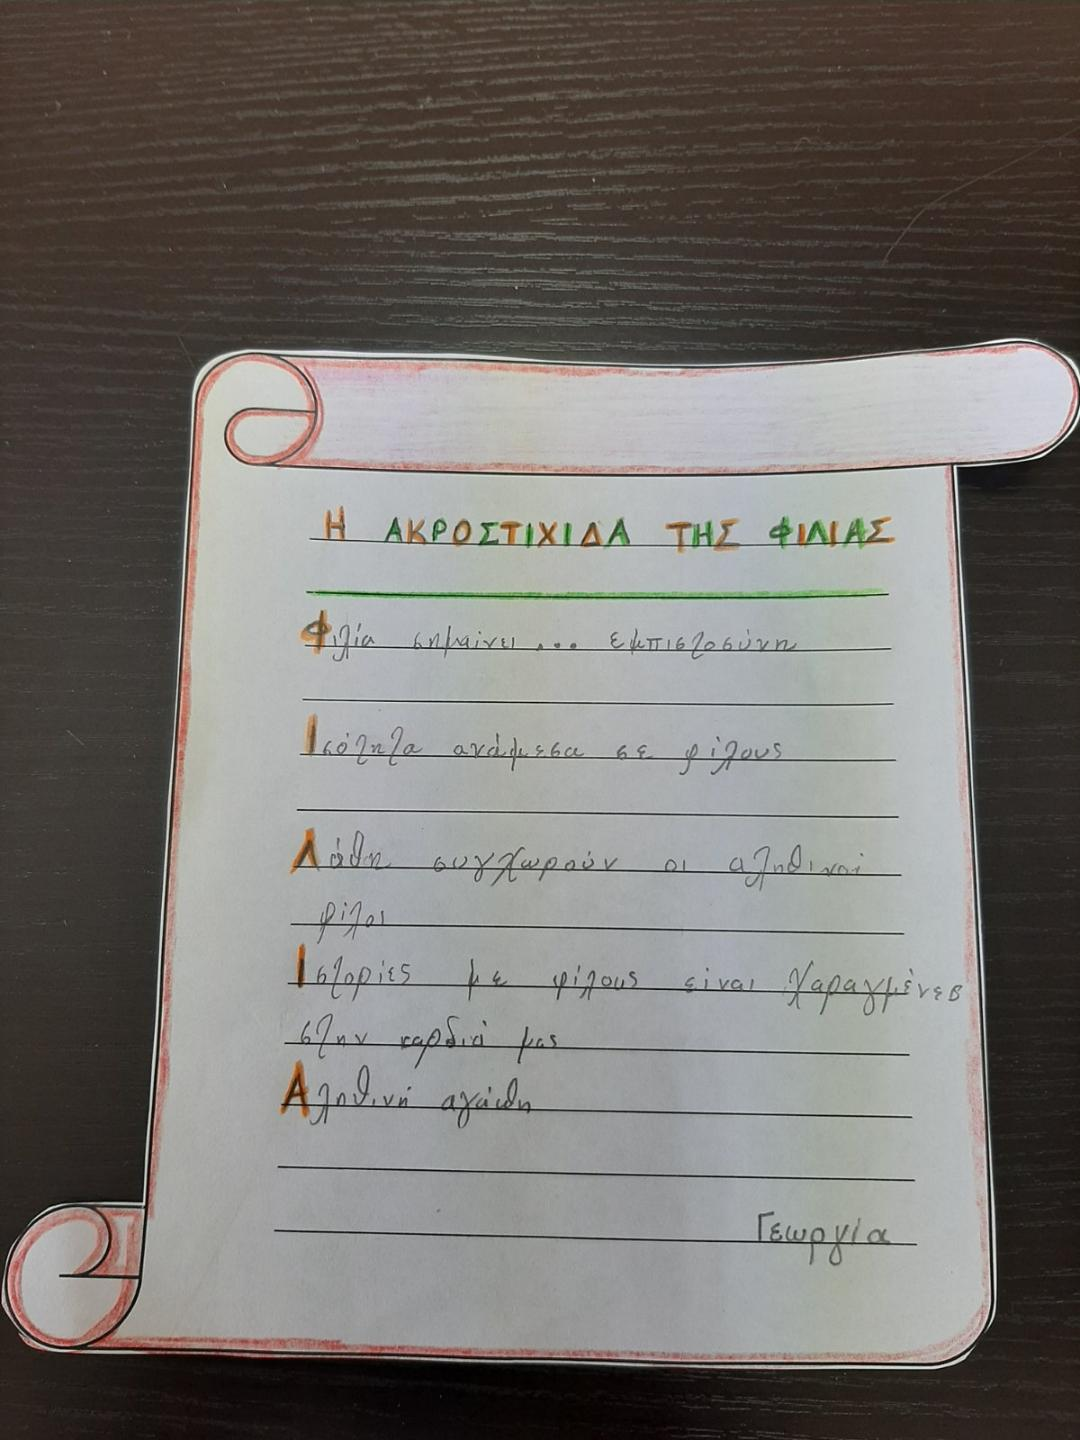 Η ΑΚΡΟΣΤΙΧΙΔΑ ΤΗΣ ΦΙΛΙΑΣ
Φιλία σημαίνει ... εμπιστοσύνη
Ισότητα ανάμεσα σε φίλους
Λάθη συγχωρούν οι αληθινοί
φίλοι
Ιστορίες με φίλους είναι χαραγμένες
στην καρδιά μας
Αληθινή αγάπη
Γεωργία